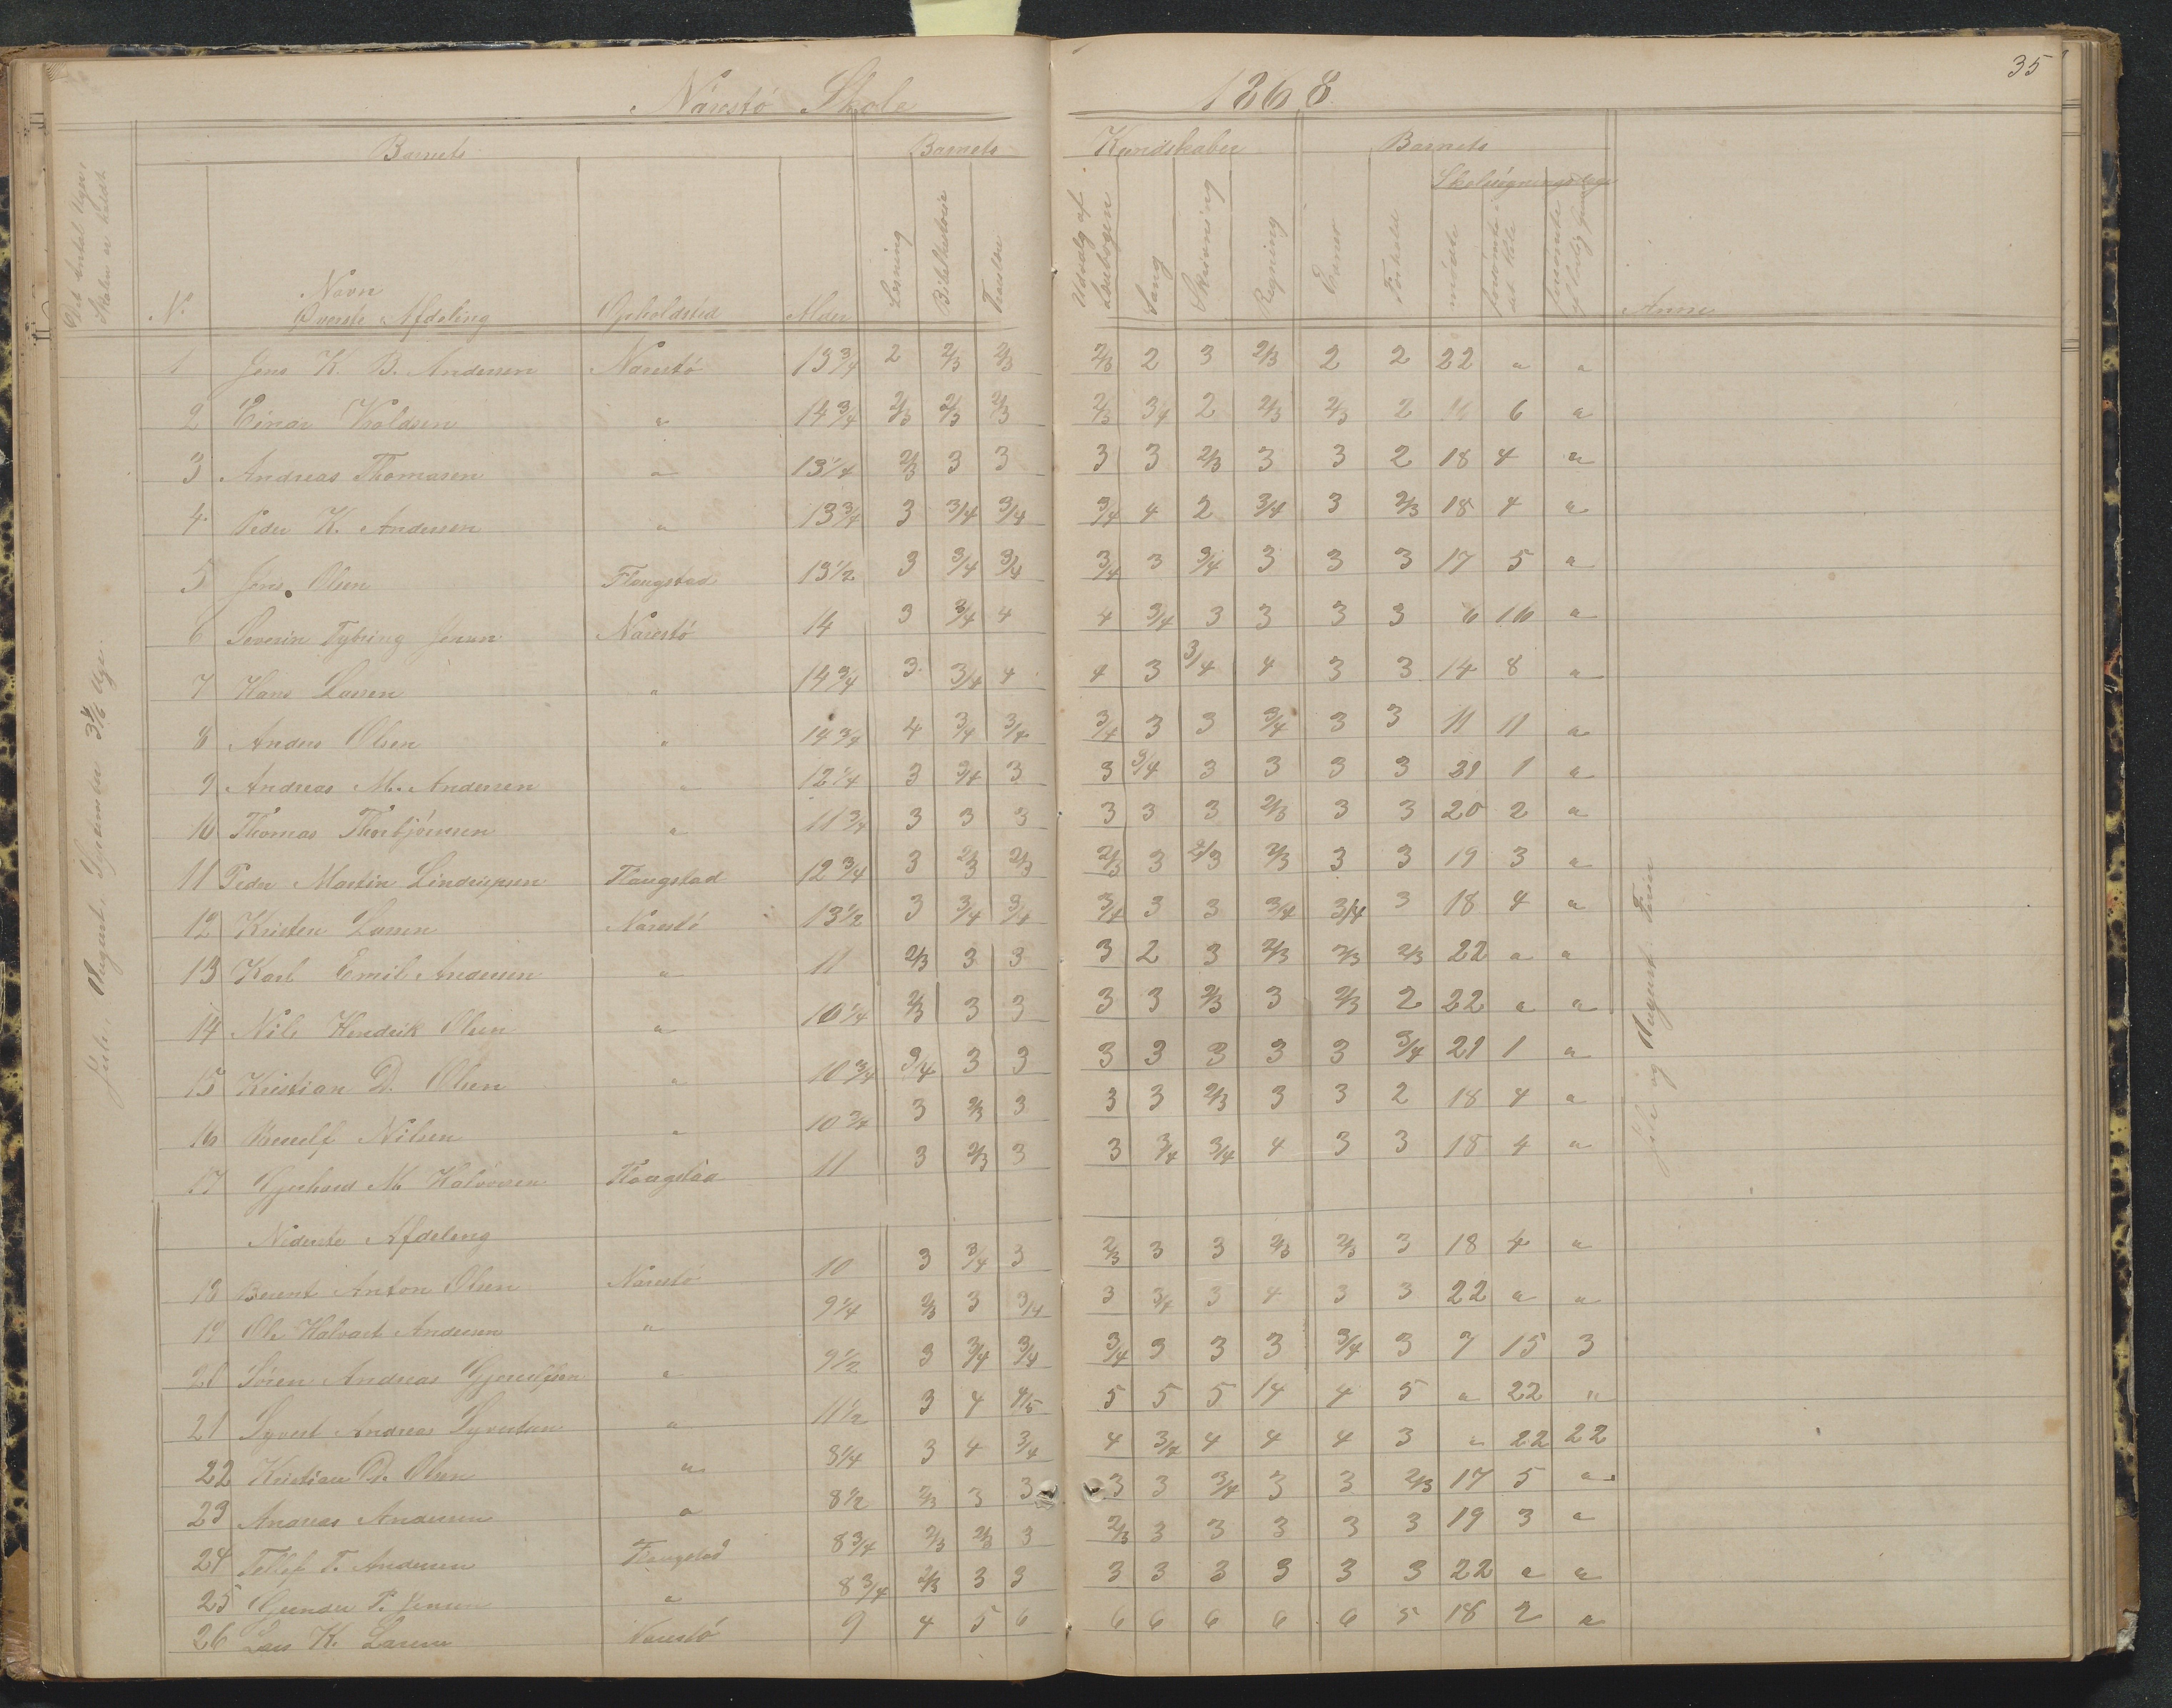 35
Narestö Skole 1868.
Barnets Barnets Kundskaber Barnets
Skolesøgningsdage
Det Antal Uger Skolen er holdt
N. Navn Opholdsted Alder Læsning Bibelhistorie Troeslære Udvalg af Læsebogen Sang Skrivning Regning Evner Forhold mødte forsømte i det Hele forsømte af lovlig Grund Anm
Øverste Afdeling
1 Jens K. B. Andersen Narestö 13 3/4 2 2/3 2/3 2/3 2 3 2/3 2 2 22 " "
2 Einar Voldsen " 14 3/4 2/3 2/3 2/3 2/3 3/4 2 2/3 2/3 2 16 6 "
3 Andreas Thomasen " 13 1/4 2/3 3 3 3 3 2/3 3 3 2 18 4 "
4 Peder K. Andersen " 13 3/4 3 3/4 3/4 3/4 4 2 3/4 3 2/3 18 4 "
5 Jens Olsen Flangstad 13 1/2 3 3/4 3/4 3/4 3 3/4 3 3 3 17 5 "
6 Severin Tybring Jensen Narestö 14 3 3/4 4 4 3/4 3 3 3 3 6 16 "
7 Hans Larsen " 14 3/4 3 3/4 4 4 3 3/4 4 3 3 14 8 "
8 Anders Olsen " 14 3/4 4 3/4 3/4 3/4 3 3 3/4 3 3 11 11 "
9 Andreas M. Andersen " 12 1/4 3 3/4 3 3 3/4 3 3 3 3 21 1 "
10 Thomas Thorbjörnsen " 11 3/4 3 3 3 3 3 3 2/3 3 3 20 2 "
11 Peder Martin Lindrupsen Flangstad 12 3/4 3 2/3 2/3 2/3 3 2/3 2/3 3 3 19 3 "
12 Kristen Larsen Narestö 13 1/2 3 3/4 3/4 3/4 3 3 3/4 3/4 3 18 4 "
13 Karl Emil Andersen " 11 2/3 3 3 3 2 3 2/3 2/3 2/3 22 " "
14 Nils Hendrik Olsen " 10 1/4 2/3 3 3 3 3 2/3 3 2/3 2 22 " "
15 Kristian D. Olsen " 10 3/4 3/4 3 3 3 3 3 3 3 3/4 21 1 "
16 Nilsen " 10 3/4 3 2/3 3 3 3 2/3 3 3 2 18 4 "
17 Gjerhard M Halvorsen Flangstad 11 3 2/3 3 3 3/4 3/4 4 3 3 18 4 "
Nederste Afdeling
18 Berent Anton Olsen Narestö 10 3 3/4 3 2/3 3 3 2/3 2/3 3 18 4 "
19 Ole Halvart Andersen " 9 1/4 2/3 3 3/4 3 3/4 3 4 3 3 22 " "
20 Sören Andreas " 9 1/2 3 3/4 3/4 3/4 3 3 3 3/4 3 7 15 3
21 Syvert Andreas Syvertsen " 11 1/2 3 4 4/5 5 5 5 14 4 5 " 22 "
22 Kristian D. Olsen " 8 1/4 3 4 3/4 4 3/4 4 4 4 3 " 22 22
23 Andreas Andersen " 8 1/2 2/3 3 3 3 3 3/4 3 3 2/3 17 5 "
24 Tellef T. Andersen Flangstad 8 3/4 2/3 2/3 3 2/3 3 3 3 3 3 19 3 "
25 Gunder P. Jensen " 8 3/4 2/3 3 3 3 3 3 3 3 3 22 " "
26 Lars K. Larsen Narestö 9 4 5 6 6 6 6 6 6 5 18 2 "
Juli, August, September 3 4/6 Uge.
Juli og August Ferie